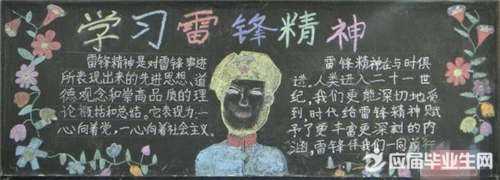 学习雷锋精神
雷锋精神是对雷锋事迹
所表现出来的先进思想、道
德观念和崇高品质的理
论概括和总结。它表现为一
心向着党,一心向着社会主义。
雷锋精神在与时俱
进,人类进入二十一世
纪,我们更能深切地受
到时代给雷锋精神赋
予了更丰富更深刻的内
涵,雷锋伴我们一同前行
应届毕业生网